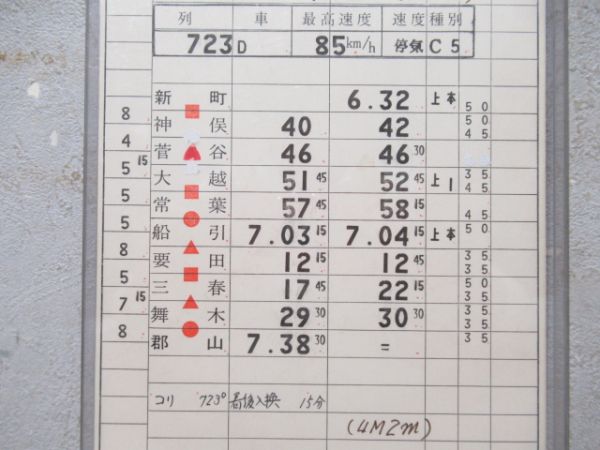 列 車 最高速度 速度種別
723D 85km/h 停気C5
新町 6.32 上本 50
8
神俣 40 42 50 45
4
菅谷 46 46 30
5 15
大越 51 45 52 45 上1 35 45
5
常葉 57 45 58 15 45
5
船引 7.03 15 7.04 15 上本 50
8
要田 12 15 12 45 35 35
5
三春 17 45 22 15 50 35
7 15
舞木 29 30 30 30 35 35
8
郡山 7.38 30 =
コリ 723D 着後入換 15分
(4M2m)